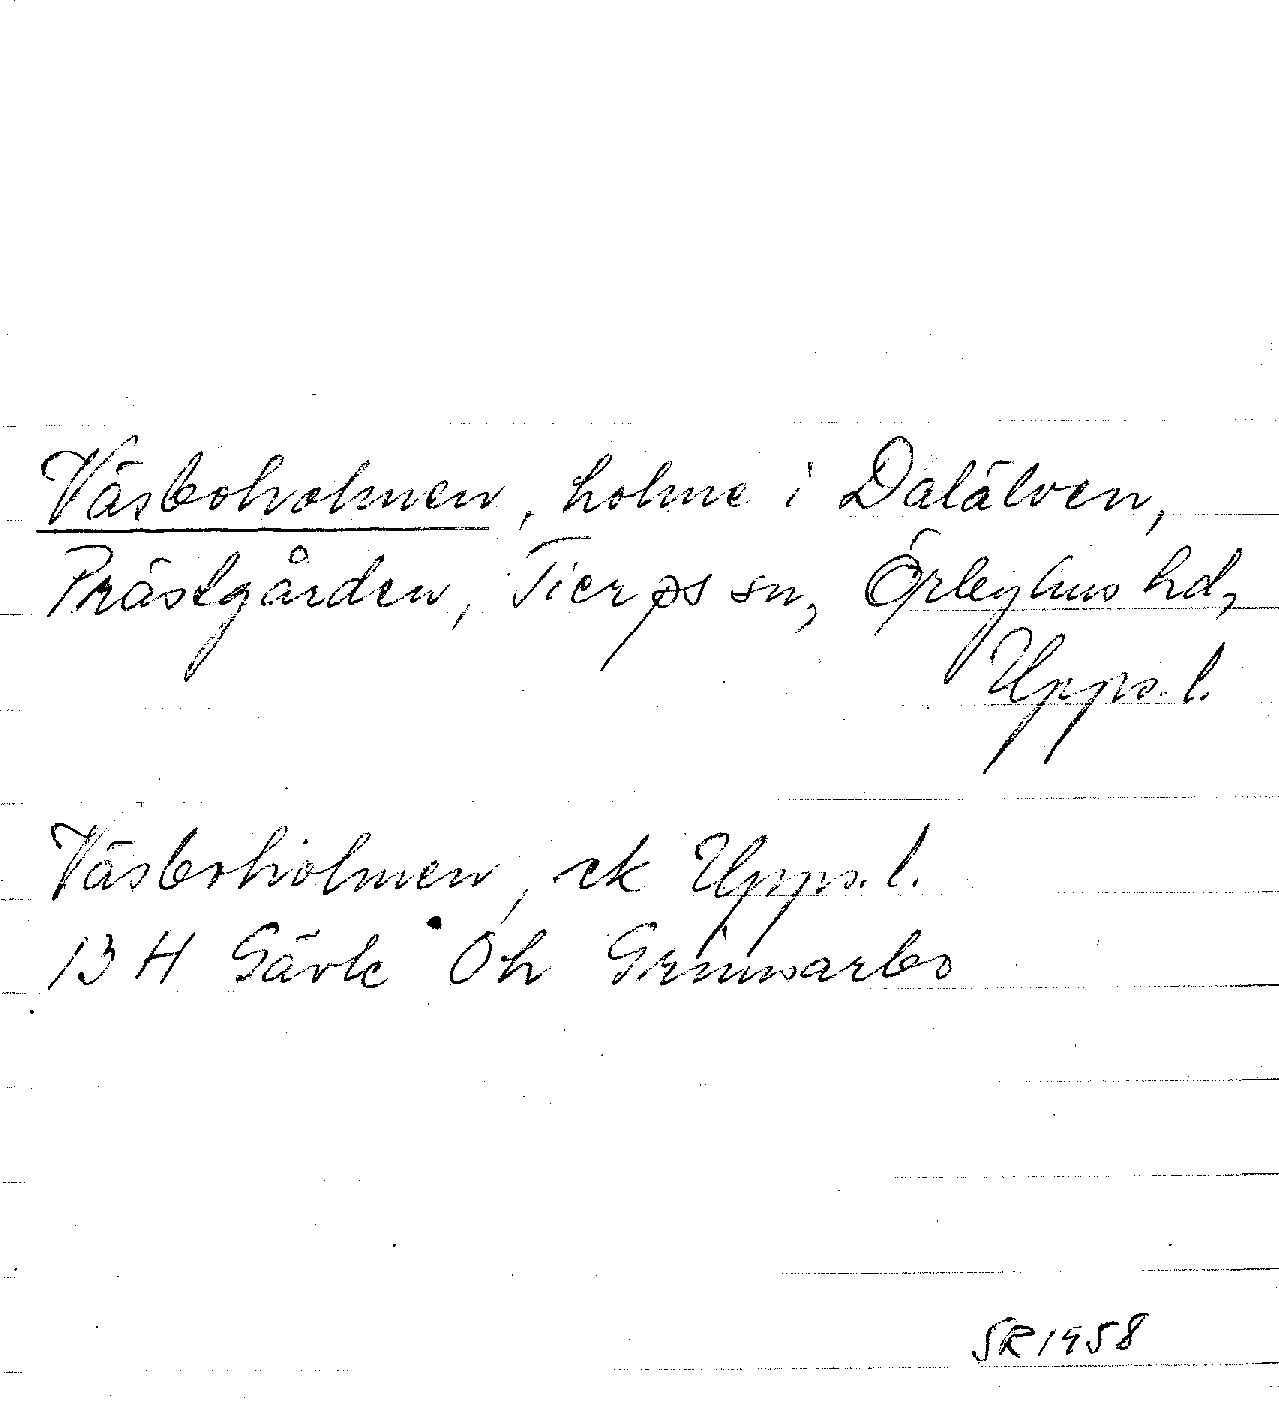 Väsboholmen, holme i Dalälven,
Prästgården, Tierps sn, Örbyhus hd,
Upps. l.
Väsboholmen, ek Upps. l.
13 H Gävle Öh Grimsarbo
SR 1958